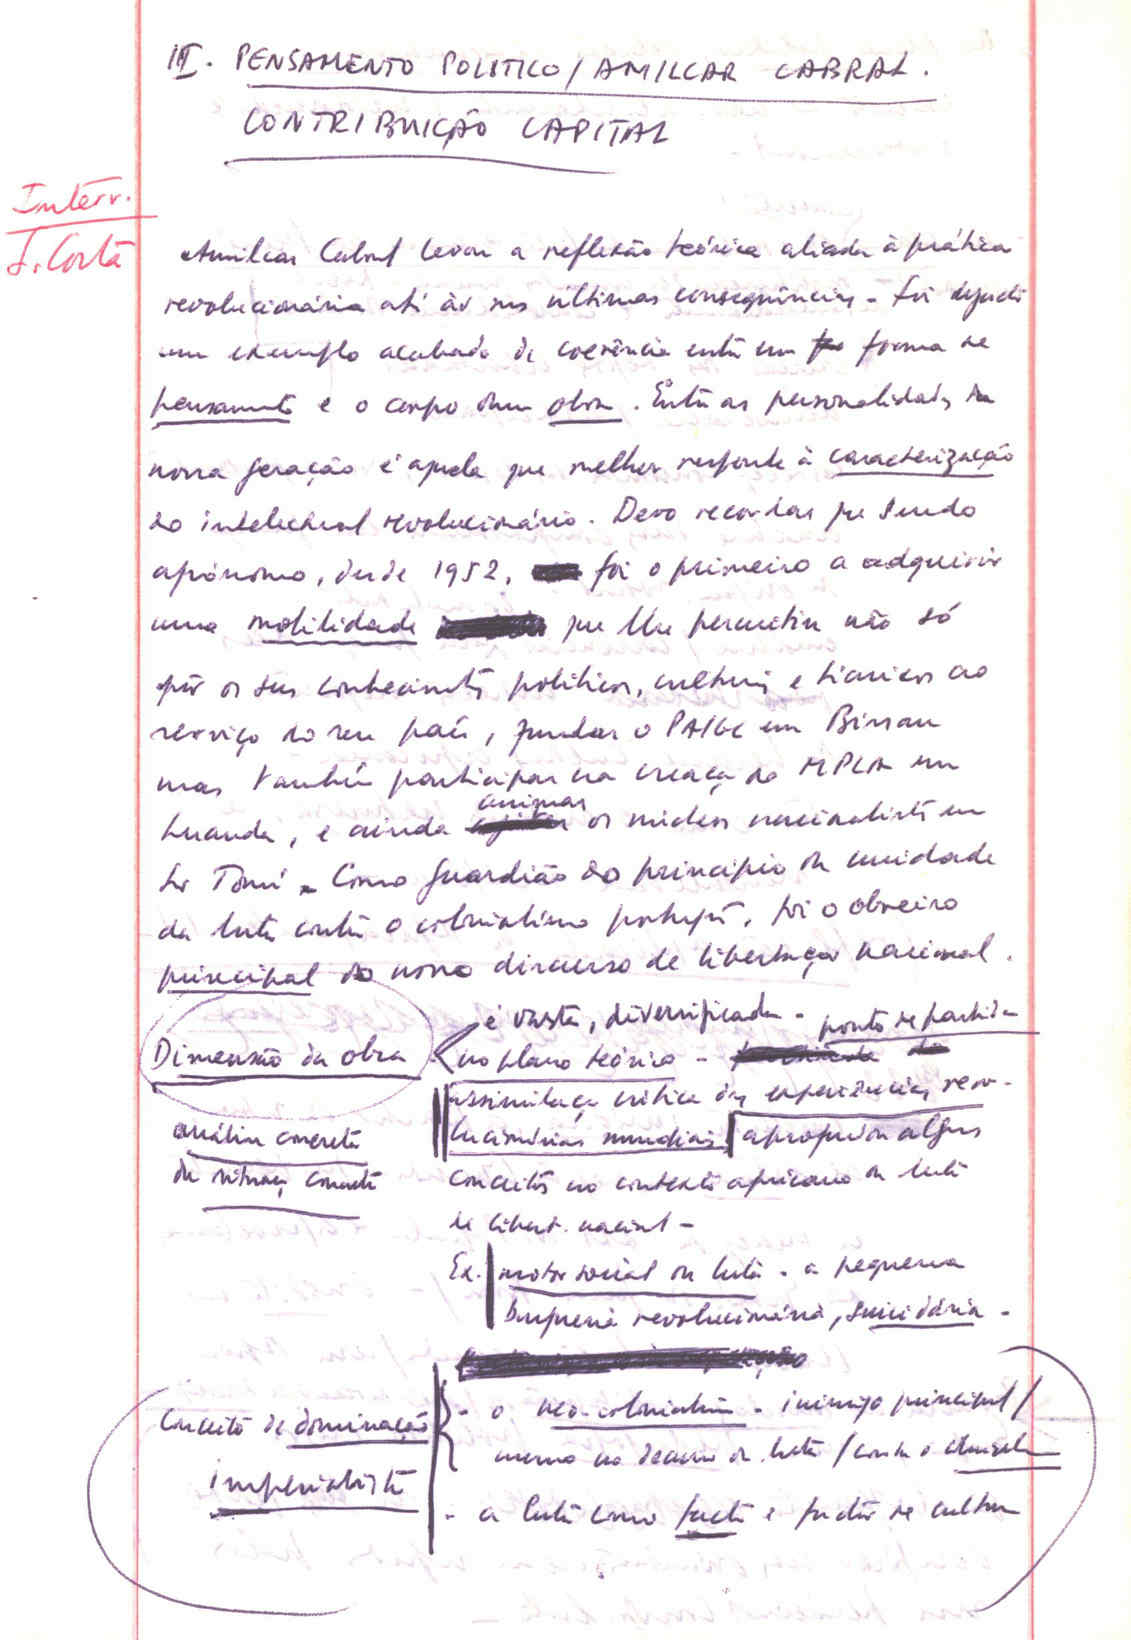 III. PENSAMENTO POLITICO/AMILCAR CABRAL.
CONTRIBUIÇÃO CAPITAL
Interv.
J. Cortà
Amilcar Cabral levou a reflexão teórica aliada à prática
revolucionária até às suas últimas consequências -. Foi
um exemplo acabado de coerência entre uma forma de
pensamento e o corpo duma obra. Entre as personalidades da
nossa geração é aquela que melhor responde à caracterização
do intelectual revolucionário. Devo recordar que sendo
agrónomo, desde 1952, foi o primeiro a adquirir
uma mobilidade que lhe permitiu não só
pôr os seus conhecimentos politicos, culturais e técnicos ao
serviço do seu país, fundar o PAIGC em Bissau
mas também participar na criação do MPLA em
Luanda, e ainda animar os núcleos nacionalistas em
S. Tomé. Como guardião do principio da unidade
da luta contra o colonialismo português, foi o obreiro
principal do novo discurso de libertação nacional.
Dimensão da obra
é vasta, diversificada - ponto de partida
no plano teórico -
assimilação critica das experiências revo-
lucionárias mundiais, apropriou alguns
conceitos no contexto africano da luta
de libert. nacional -
análise concreta
da situação concreta
Ex. motor social da luta - a pequena
burguesia revolucionária, suicidária -
Conceito de dominação
imperialista
- o neo-colonialismo - inimigo principal/
mesmo no decurso da luta / contra o
- a luta como facto e factor de cultura